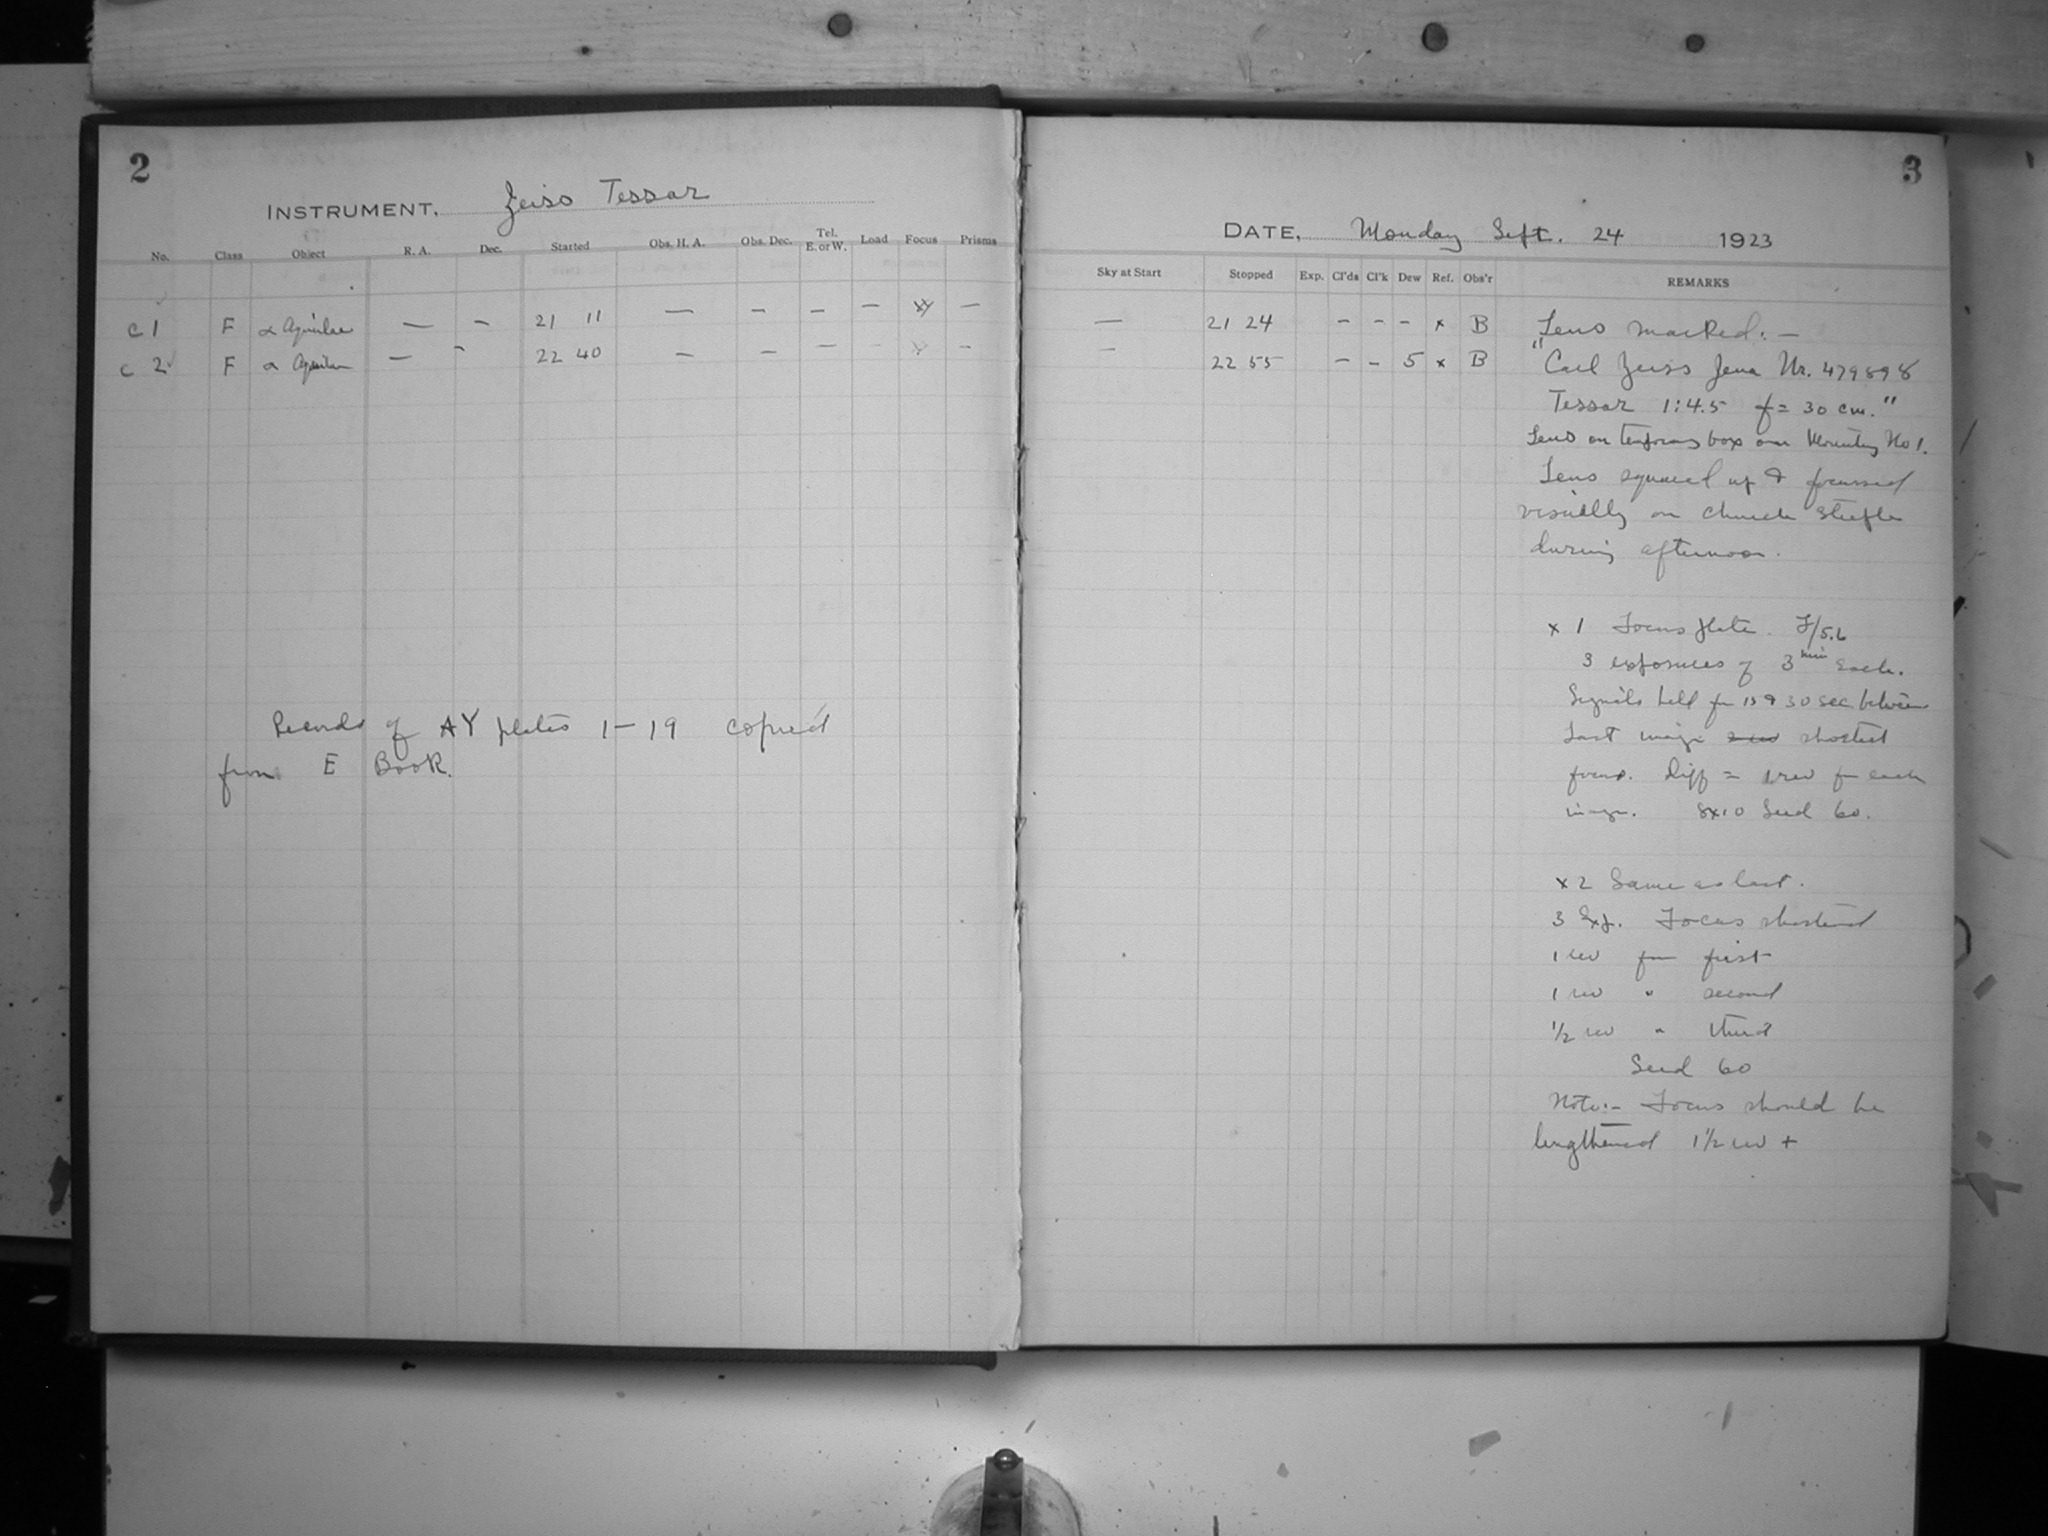 2
INSTRUMENT. Zeiss Tessar
No. Class Object R. A. Dec. Started Obs. H. A. Obs. Dec. Tel. E. or W. Load Focus Prisms
C 1 F α Aquilae — — 21 11 — — — — —
C 2 F α Aquilae — - 22 40 — — — - —
Records of AY plates 1–19 copied
from E Book.
3
DATE, Monday Sept. 24 1923
Sky at Start Stopped Exp. Cl'ds Cl'k Dew Ref. Obs'r REMARKS
— 21 24 – – – x B Lens marked:—
— 22 55 – – 5 x B "Carl Zeiss Jena Nr. 479898
Tessar 1:4.5 f = 30 cm."
Lens on temporary box on Mounting No 1.
Lens squared up & focussed
visually on church steeple
during afternoon.
x 1 Focus plate. F/5.6
3 exposures of 3 min each.
Signals held for 15 & 30 sec between
Last image shortest
focus. Diff = 1 rev for each
image. 8x10 Seed 60.
x 2 Same as last.
3 Exp. Focus shortened
1 rev for first
1 rev " second
1/2 rev " third
Seed 60
Note:- Focus should be
lengthened 1 1/2 rev +